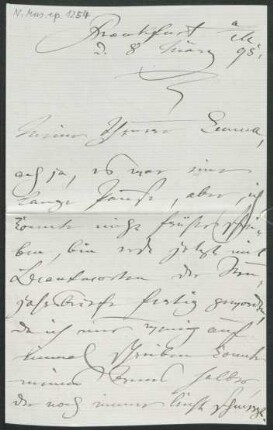 N. Mus. ep. 1254
Frankfurt a/M
d. 8 März 95.
Meine theure
ach ja, es war eine
lange Pause, aber, ich
konnte nicht früher schrei-
ben, bin erst jetzt mit
Beantworten der Neu-
jahrsbriefe fertig geworden,
da ich nur wenig auf
einmal schreiben konnte
meines Armes halber
der noch immer leicht schmerzt.